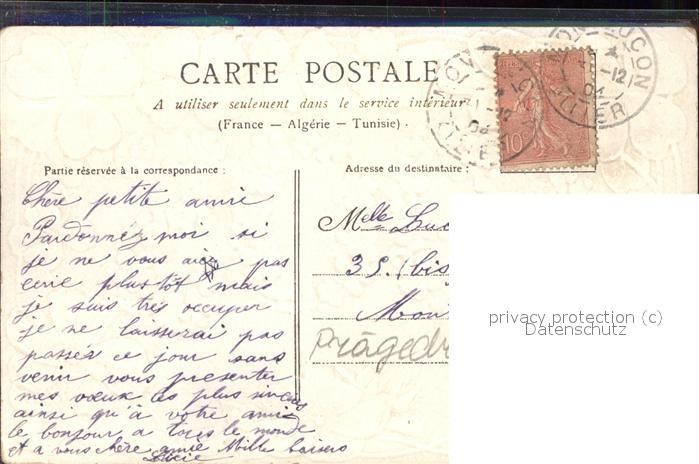 CARTE POSTALE
A utiliser seulement dans le service intérieur
(France — Algérie — Tunisie).
Partie réservée à la correspondance :
Adresse du destinataire :
Chère petite amie
Pardonnéz moi si
je ne vous ai pas
ecrie plustôt mais
je suis très occuper
je ne laisserai pas
passér ce jour sans
venir vous présenter
mes vœux les plus sincères
ainsi qu'à votre amie
le bonjour a tous le monde
et a vous chère amie Mille baisers
Lucie
Melle Luc
35 (bis
Mon
10c
LUCON
12
04
ALLIER
privacy protection (c)
Datenschutz